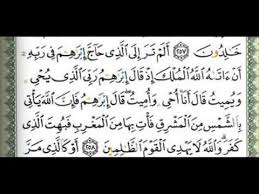 خَٰلِدُونَ ٢٥٧ أَلَمْ تَرَ إِلَى ٱلَّذِى حَآجَّ إِبْرَٰهِۦمَ فِى رَبِّهِۦٓ
أَنْ ءَاتَىٰهُ ٱللَّهُ ٱلْمُلْكَ إِذْ قَالَ إِبْرَٰهِۦمُ رَبِّىَ ٱلَّذِى يُحْىِۦ
وَيُمِيتُ قَالَ أَنَا۠ أُحْىِۦ وَأُمِيتُ ۖ قَالَ إِبْرَٰهِۦمُ فَإِنَّ ٱللَّهَ يَأْتِى
بِٱلشَّمْسِ مِنَ ٱلْمَشْرِقِ فَأْتِ بِهَا مِنَ ٱلْمَغْرِبِ فَبُهِتَ ٱلَّذِى
كَفَرَ ۗ وَٱللَّهُ لَا يَهْدِى ٱلْقَوْمَ ٱلظَّٰلِمِينَ ٢٥٨ أَوْ كَٱلَّذِى مَرَّ